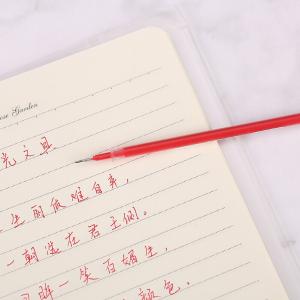 Garden
光文具
生丽质难自弃，
一朝选在君王侧。
眸一笑百媚生，
颜色。